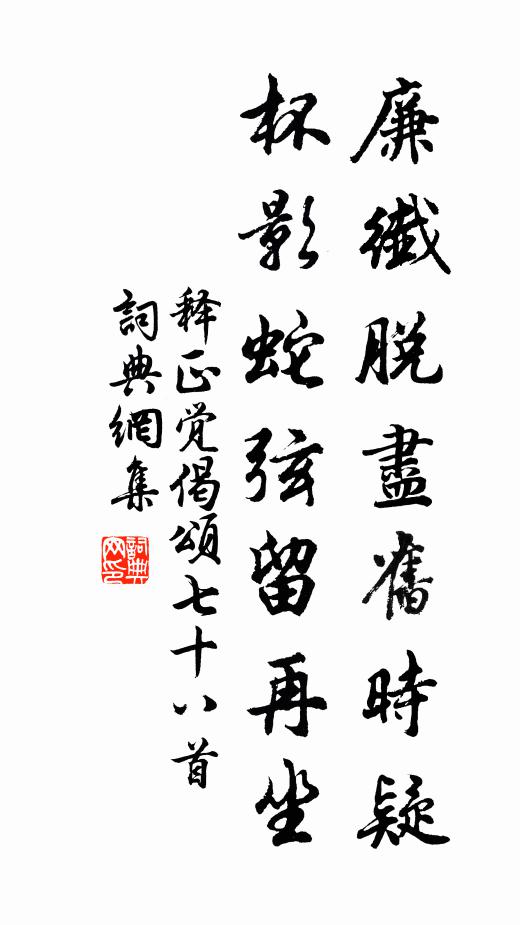 廉纖脫盡舊時疑
杯影蛇弦留再坐
释正觉偈頌七十八首
詞典網集
詞典网印